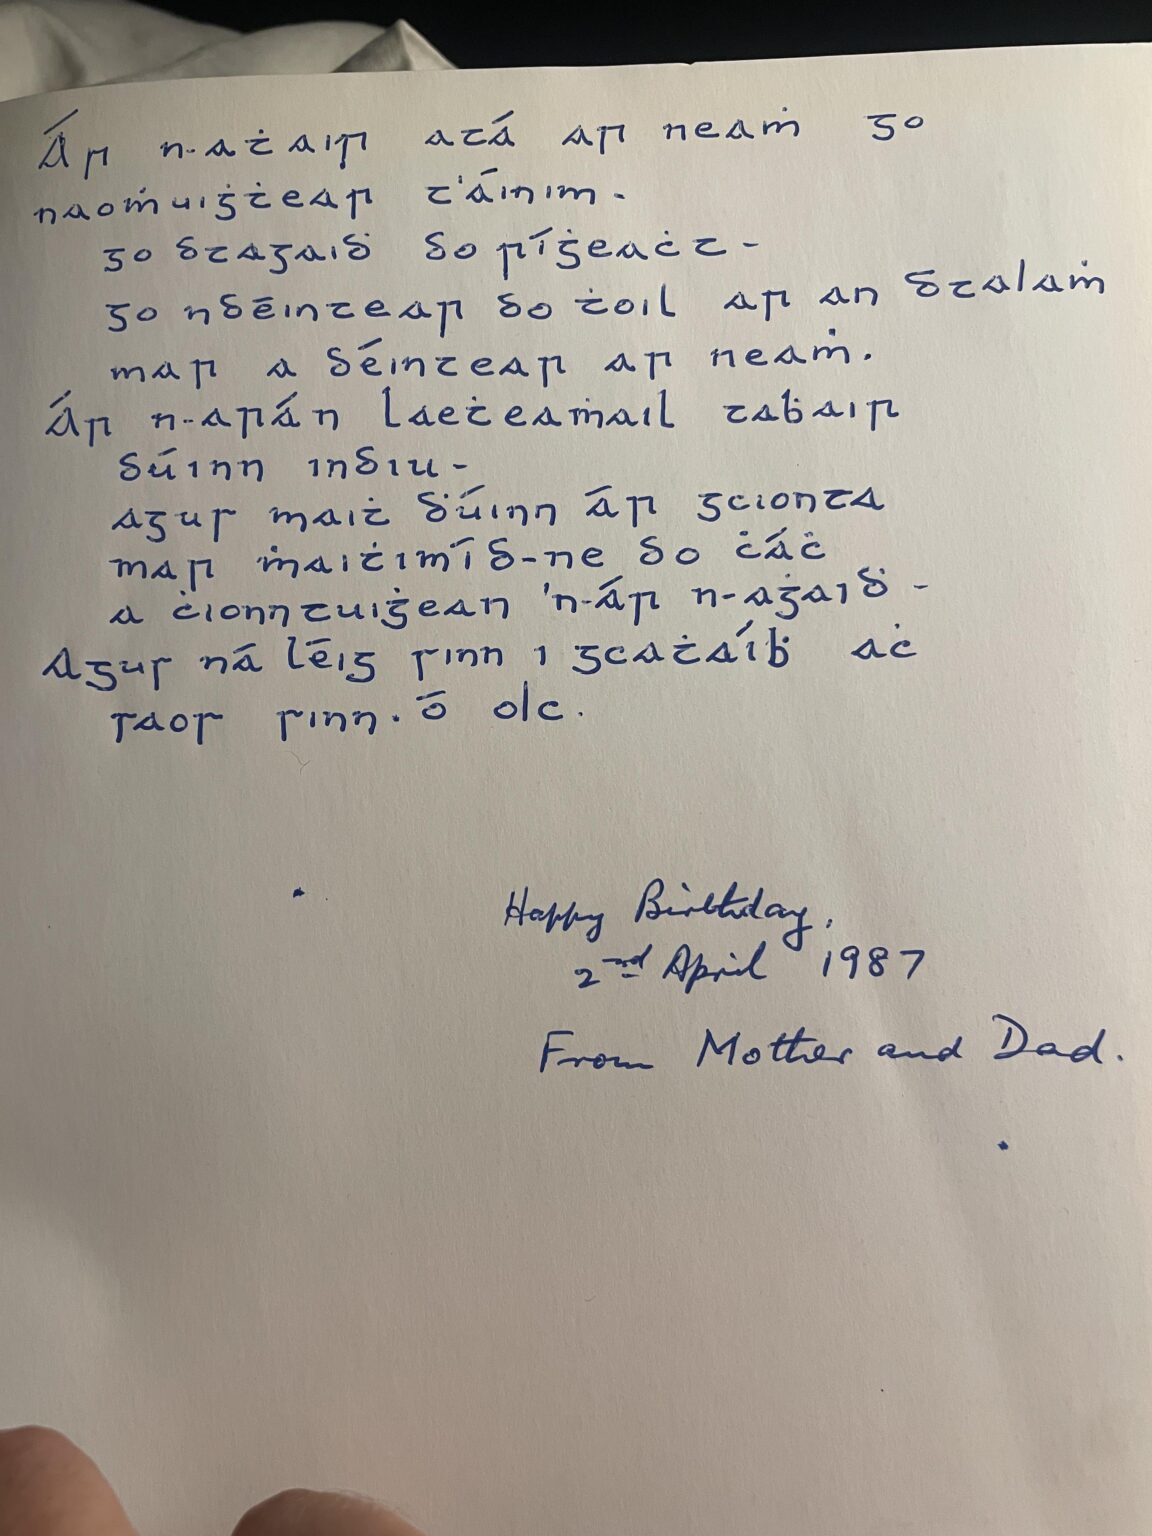 Ár n-aṫair atá ar neaṁ go
naoṁuiġṫear t'áinim.
go dtagaiḋ do ríġeaċt -
go ndéintear do ṫoil ar an dtalaṁ
mar a déintear ar neaṁ.
Ár n-arán laeṫeaṁail tabair
dúinn indiu -
agus maiṫ ḋúinn ár gcionta
mar ṁaiṫimíd-ne do ċáċ
a ċionntuiġean 'n-ár n-aġaiḋ -
Agus ná léig sinn i gcaṫáíḃ aċ
saor sinn. ó olc.
Happy Birthday,
2nd April 1987
From Mother and Dad.